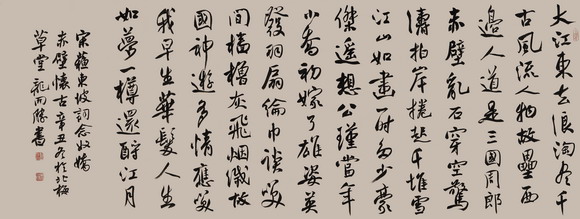 大江東去浪淘尽千
古風流人物故壘西
邊人道是三國周郎
赤壁亂石穿空驚
濤拍岸捲起千堆雪
江山如畫一時多少豪
傑遙想公瑾當年
小喬初嫁了雄姿英
發羽扇綸巾談笑
間檣櫓灰飛烟滅故
國神遊多情應笑
我早生華髮人生
如夢一樽還酹江月
宋蘇東坡詞念奴嬌
赤壁懷古辛丑冬於北
草堂龍開勝書